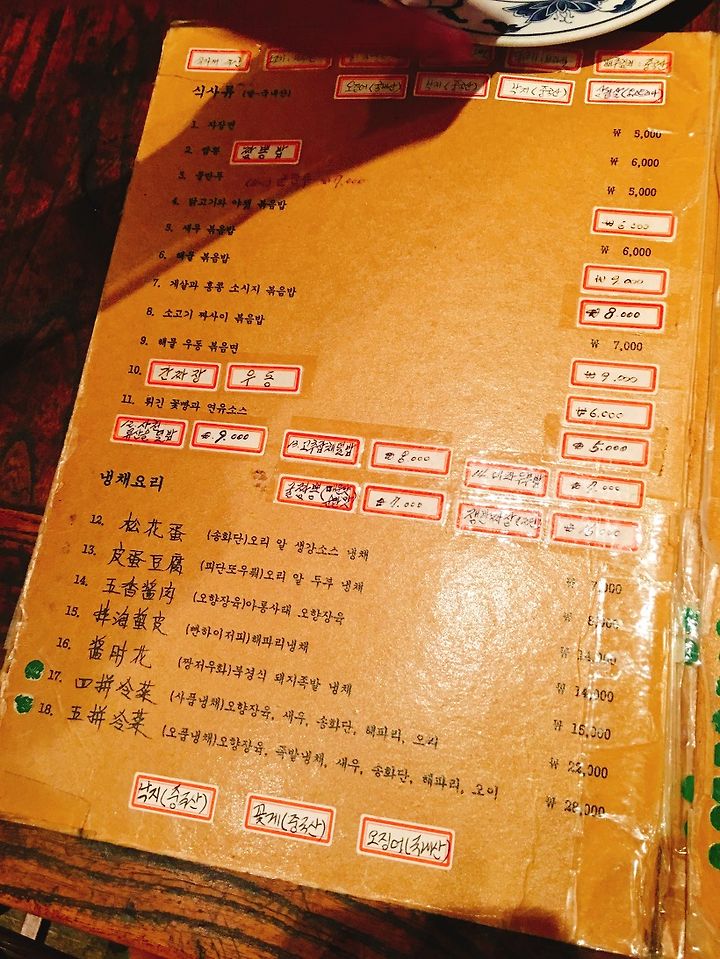 식사류 (쌀-국내산)
오징어(국내산) 낙지(중국산) 낙지(중국산)
1. 자장면 ₩ 5,000
2. 짬뽕 짬뽕밥 ₩ 6,000
3. 물만두 ₩ 5,000
4. 닭고기와 야챌 볶음밥 ₩ 6,000
5. 새우 볶음밥 ₩ 6,000
6. 해물 볶음밥 ₩ 9,000
7. 게살과 홍콩 소시지 볶음밥 ₩ 8,000
8. 소고기 짜사이 볶음밥 ₩ 7,000
9. 해물 우동 볶음면 ₩ 9,000
10. 간짜장 우동 ₩ 6,000
11. 튀긴 꽃빵과 연유소스 ₩ 5,000
류산슬덮밥 ₩ 9,000 13.고추잡채덮밥 ₩ 8,000 14. ₩ 7,000
굴짬뽕 ₩ 7,000 쟁반짜장
냉채요리
12. 松花蛋 (송화단)오리 알 생강소스 냉채 ₩ 7,000
13. 皮蛋豆腐 (피단또우풔)오리 알 두부 냉채 ₩ 8,000
14. 五香醬肉 (오향장육)아롱사태 오향장육 ₩
15. 拌海蜇皮 (빤하이저피)해파리냉채 ₩ 14,000
16. 醬肘花 (짱저우화)북경식 돼지족발 냉채 ₩ 15,000
17. 四拼冷菜 (사품냉채)오향장육, 새우, 송화단, 해파리, 오리 ₩ 22,000
18. 五拼冷菜 (오품냉채)오향장육, 족발냉채, 새우, 송화단, 해파리, 오이 ₩ 28,000
낙지(중국산) 꽃게(중국산) 오징어(국내산)